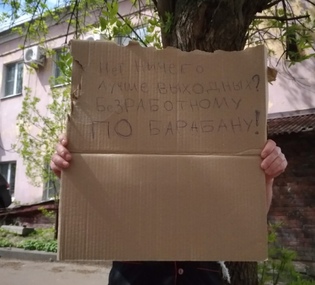 НЕТ НИЧЕГО
ЛУЧШЕ ВЫХОДНЫХ?
БЕЗРАБОТНОМУ
ПО БАРАБАНУ!